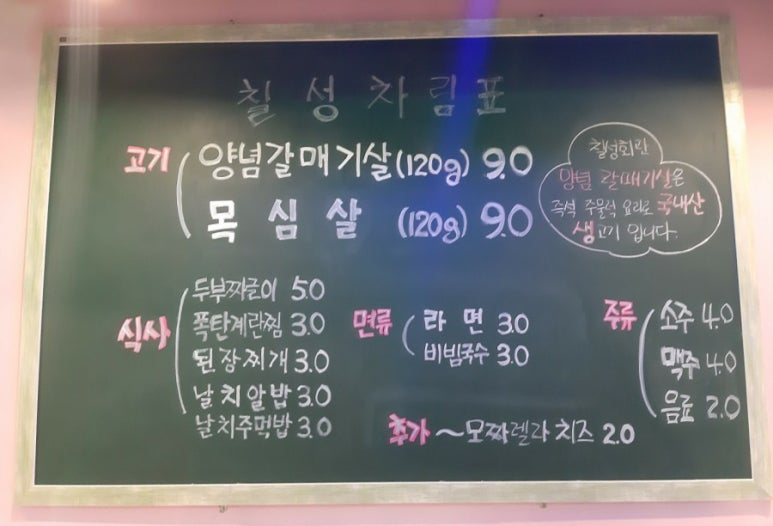 칠성차림표
고기
양념갈매기살 (120g) 9.0
목심살 (120g) 9.0
칠성회관
양념 갈매기살은
즉석 주물럭 요리로 국내산
생고기 입니다.
식사
두부짜글이 5.0
폭탄계란찜 3.0
된장찌개 3.0
날치알밥 3.0
날치주먹밥 3.0
면류
라면 3.0
비빔국수 3.0
주류
소주 4.0
맥주 4.0
음료 2.0
추가 ~모짜렐라 치즈 2.0